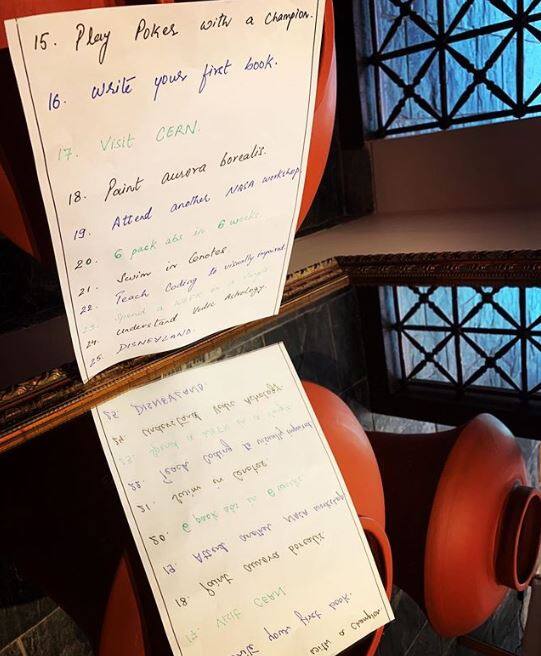 15. Play Poker with a champion.
16. Write your first book.
17. Visit CERN.
18. Paint aurora borealis.
19. Attend another NASA workshop
20. 6 pack abs in 6 weeks.
21. Swim in Cenotes.
22. Teach Coding to visually impaired.
23. Spend a week in a
24. Understand Vedic Astrology.
25. DISNEYLAND.